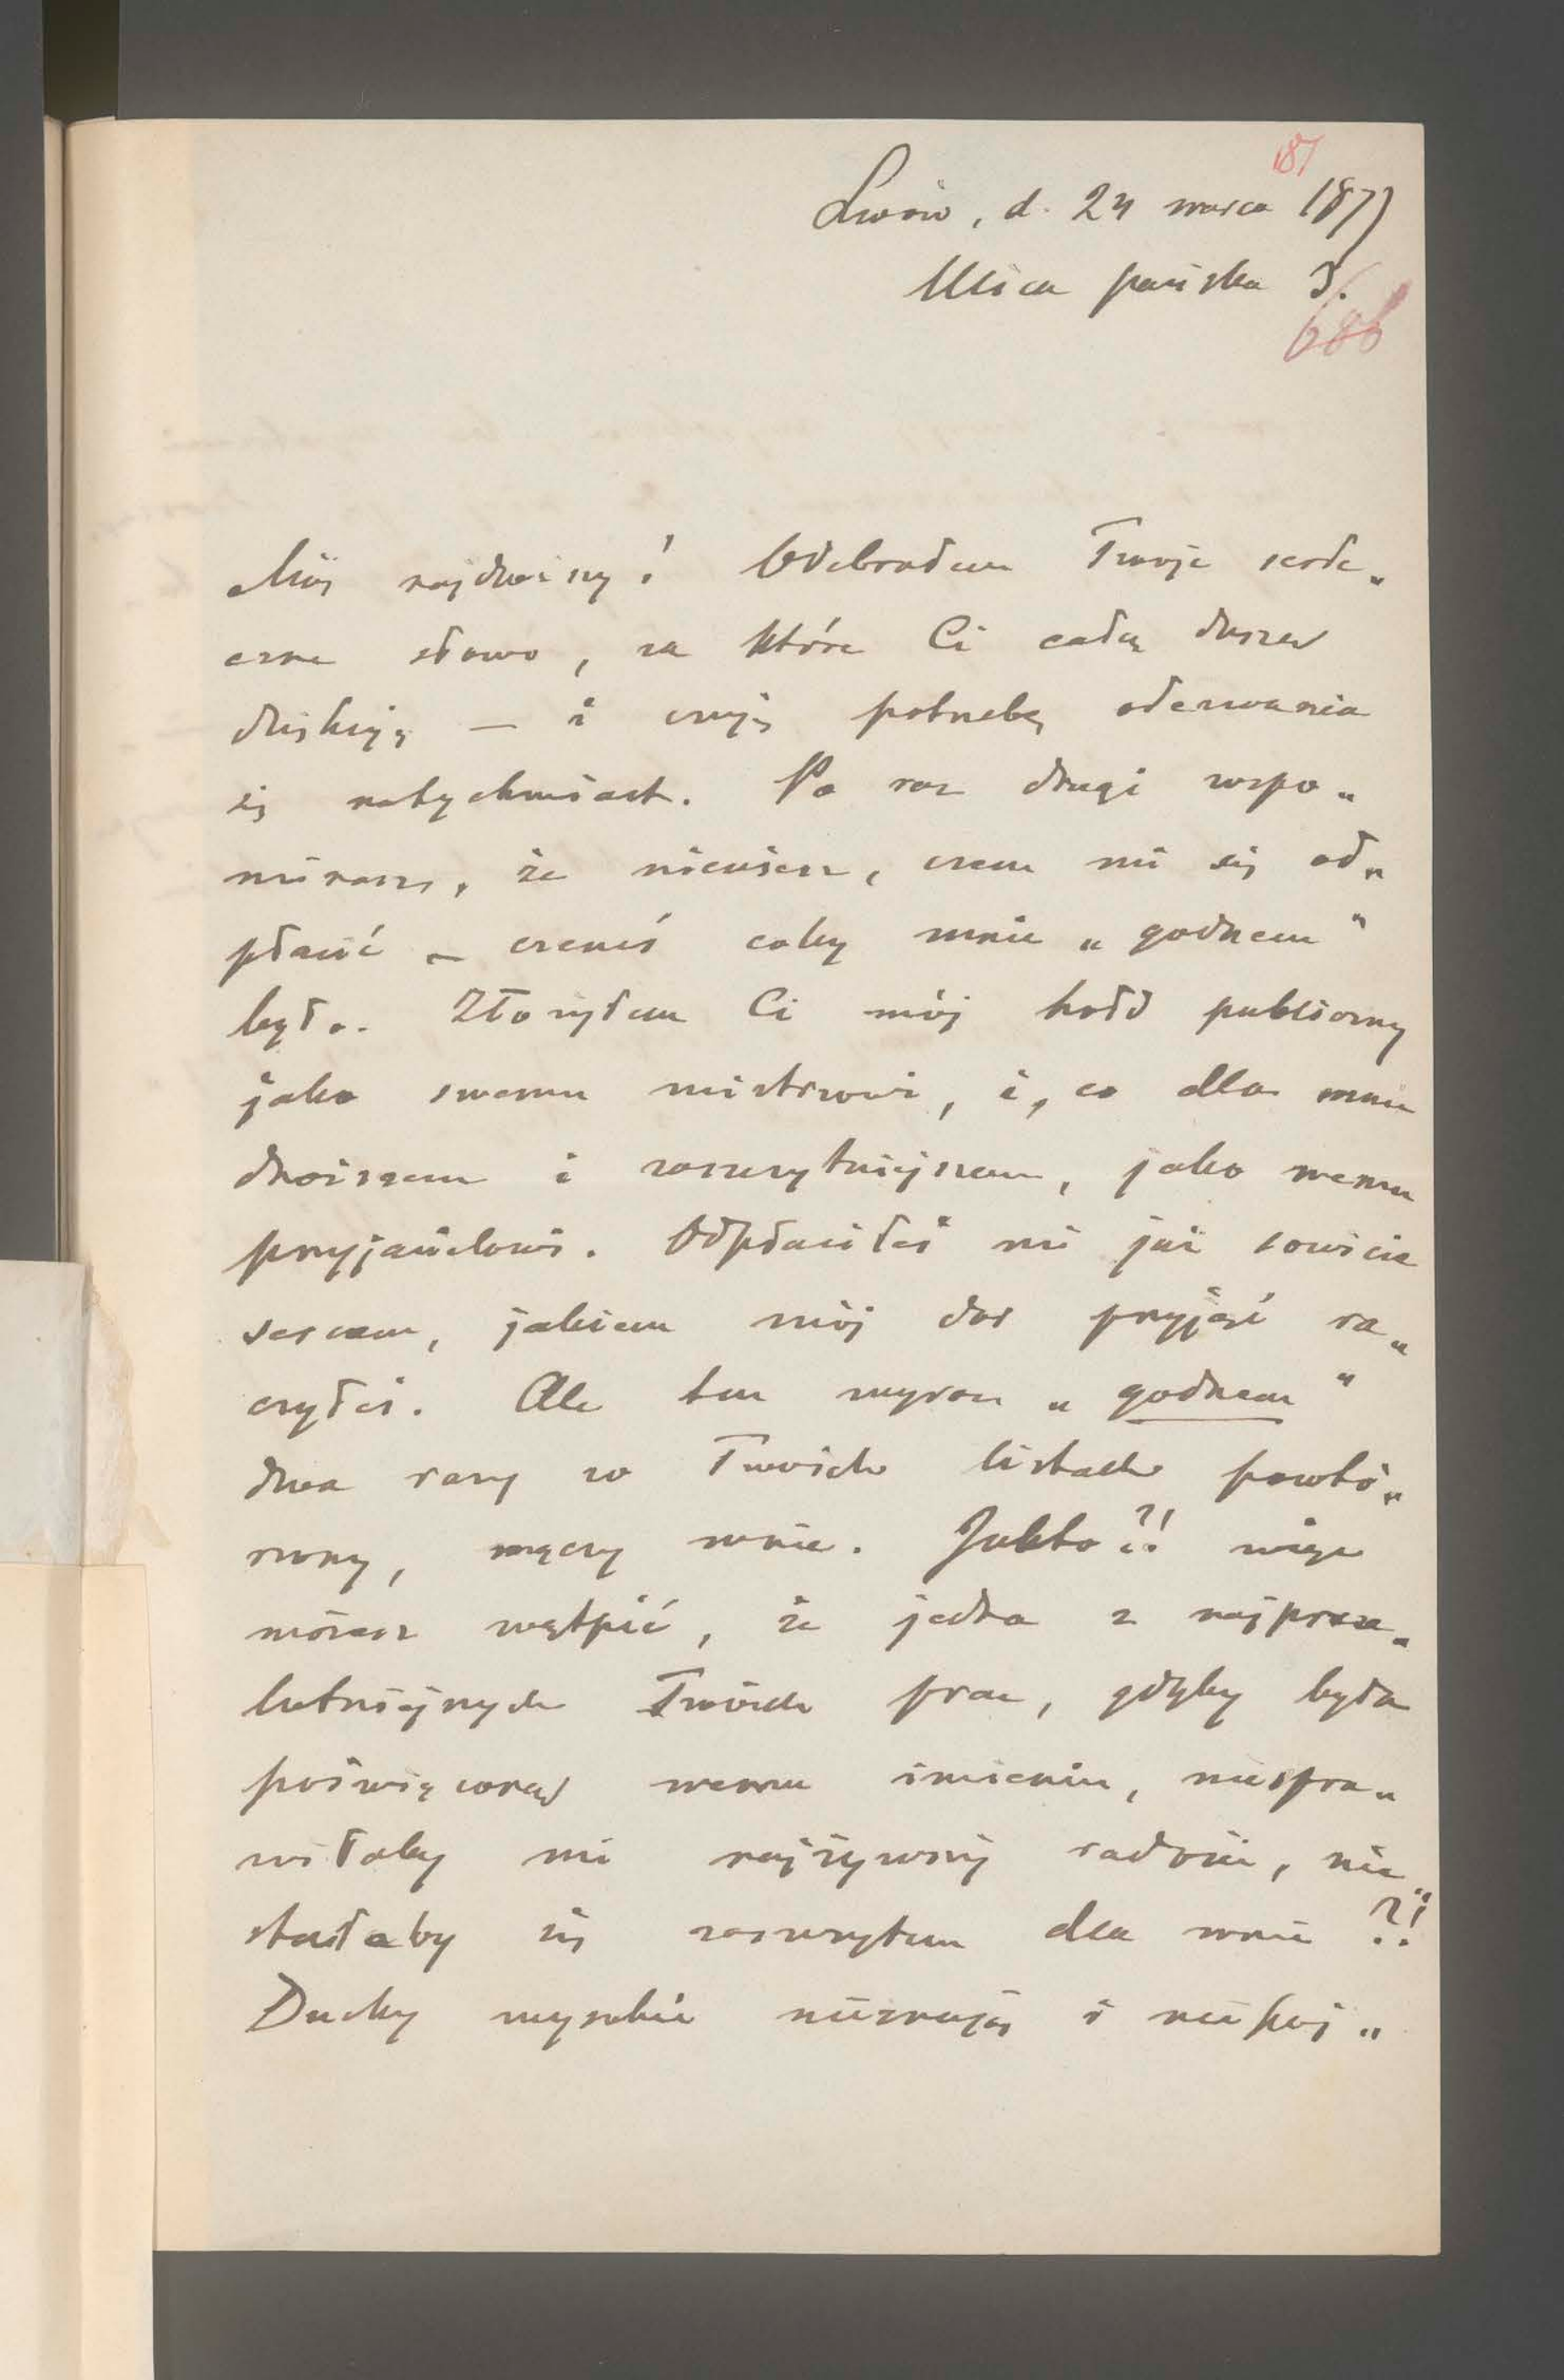 187
Lwów, d. 24 marca 1877
Ulica pańska 3.
686
Mój najdroższy! Odebrałem Twoje serde„
czne słowo, za które Ci całą duszą
dziękuję – i czuję potrzebę odezwania
się natychmiast. Po raz drugi wspo„
minasz, że niewiesz, czem mi się od„
płacić – czemś coby mnie „godnem“
było. Złożyłem Ci mój hołd publiczny
jako swemu mistrzowi, i, co dla mnie
droższem i zaszczytniejszem, jako memu
przyjacielowi. Odpłaciłeś mi już sowicie
sercem, jakiem mój dar przyjąć ra„
czyłeś. Ale ten wyraz „godnem“
dwa razy w Twoich listach powtó„
rzony, męczy mnie. Jakto?! więc
możesz wątpić, że jedna z najprze„
lotniejszych Twoich prac, gdyby była
poświęconą memu imieniu, niespra„
wiłaby mi najżywszej radości, nie„
stałaby się zaszczytem dla mnie?!
Duchy wysokie nieznają i niepoj„